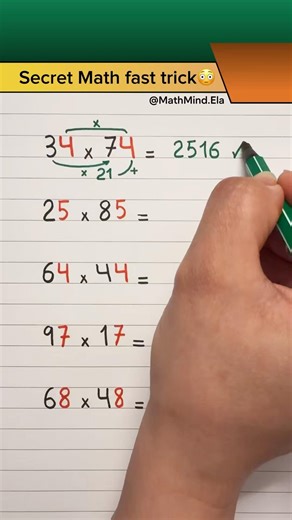 Secret Math fast trick😳
@MathMind.Ela
x
34 x 74 = 2516 ✓
x 21 +
25 x 85 =
64 x 44 =
97 x 17 =
68 x 48 =